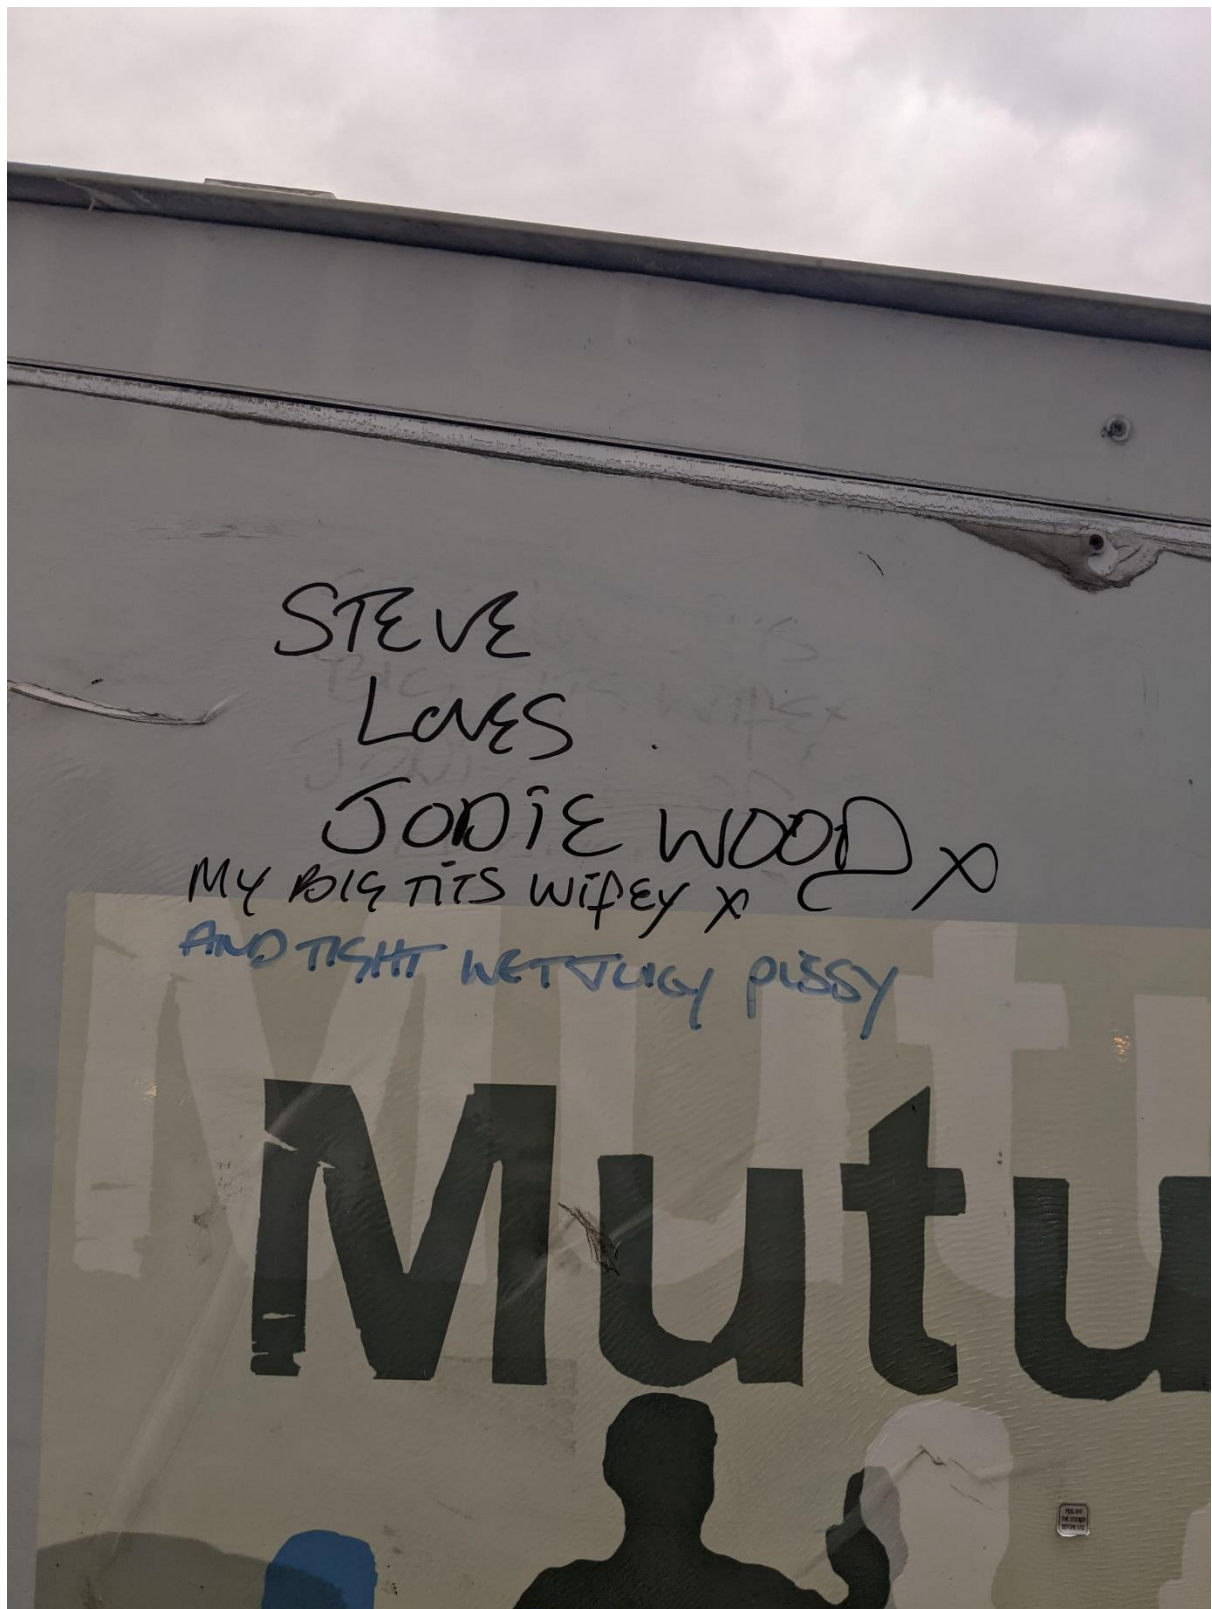 STEVE
LOVES
JODIE WOOD x
MY BIG TITS WIFEY x
AND TIGHT WET JUICY PUSSY
Mutu